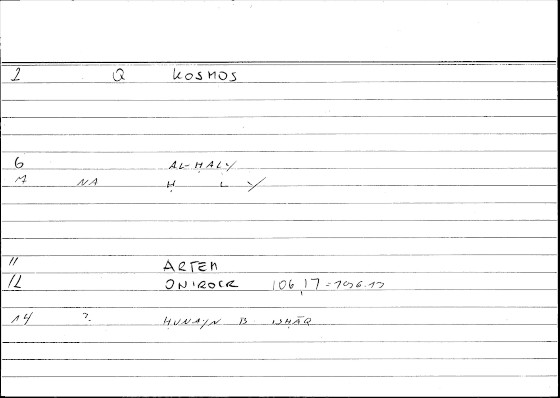 2 Q KOSMOS
6 AL-ḤALY
M NA Ḥ L Y
11 ARTEM
12 ONIROCR 106,17 = 196.13
14 ? ḤUNAYN B ISḤĀQ